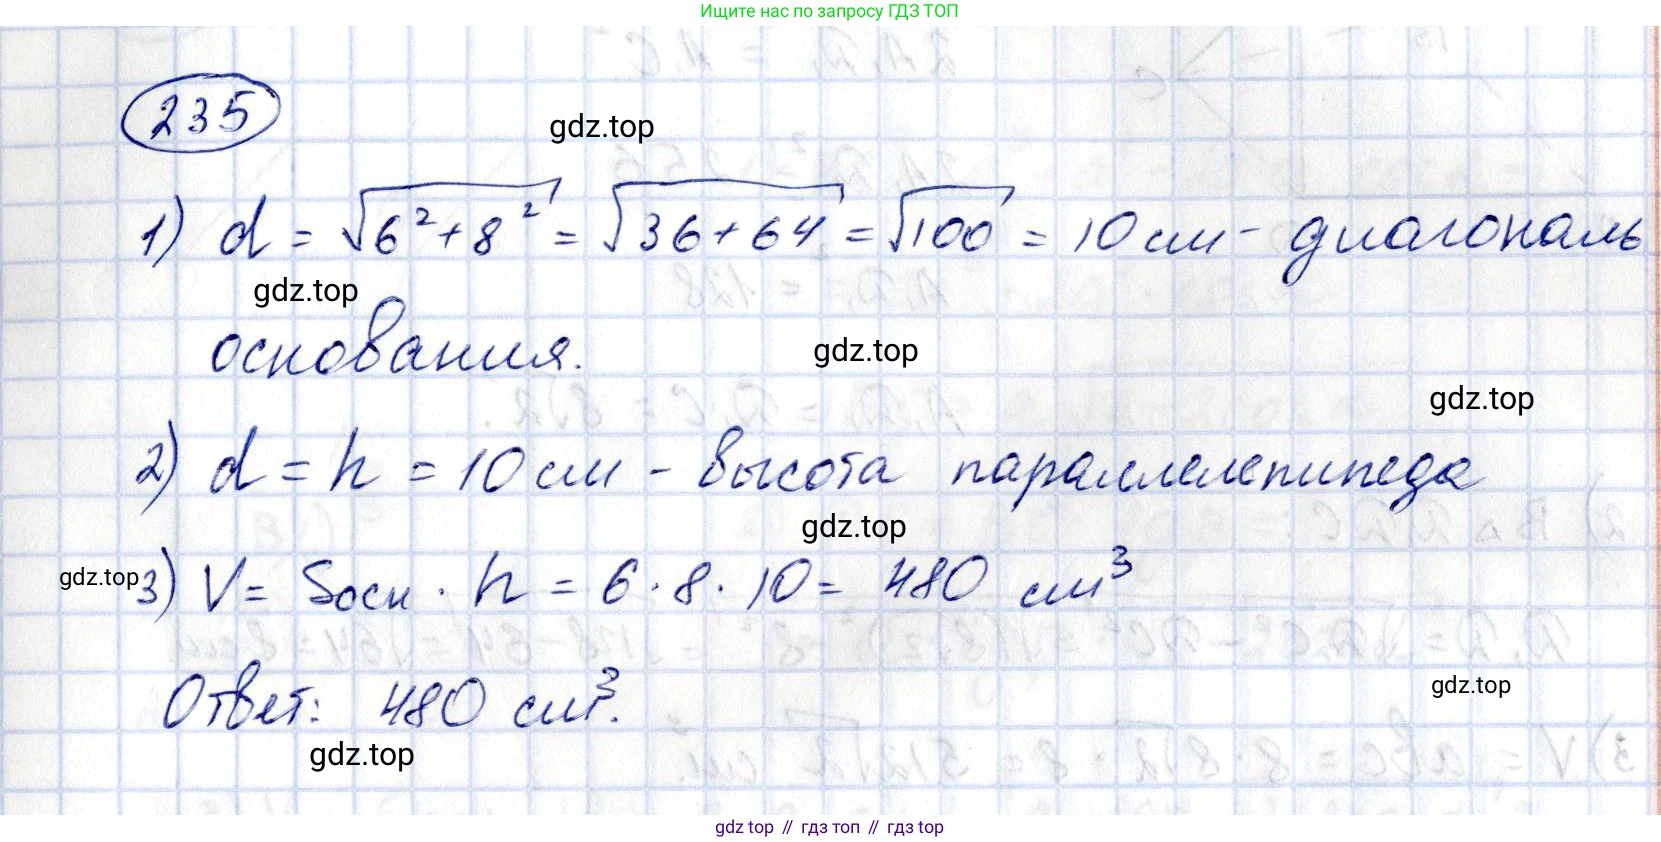 Ищите нас по запросу ГДЗ ТОП
235
gdz.top
1) d = √6² + 8² = √36 + 64 = √100 = 10 см - диагональ
gdz.top
основания.
gdz.top
gdz.top
2) d = h = 10 см - высота параллелепипеда
gdz.top
gdz.top
3) V = Sосн · h = 6 · 8 · 10 = 480 см³
gdz.top
Ответ: 480 см³.
gdz.top
gdz top // гдз топ // gdz top